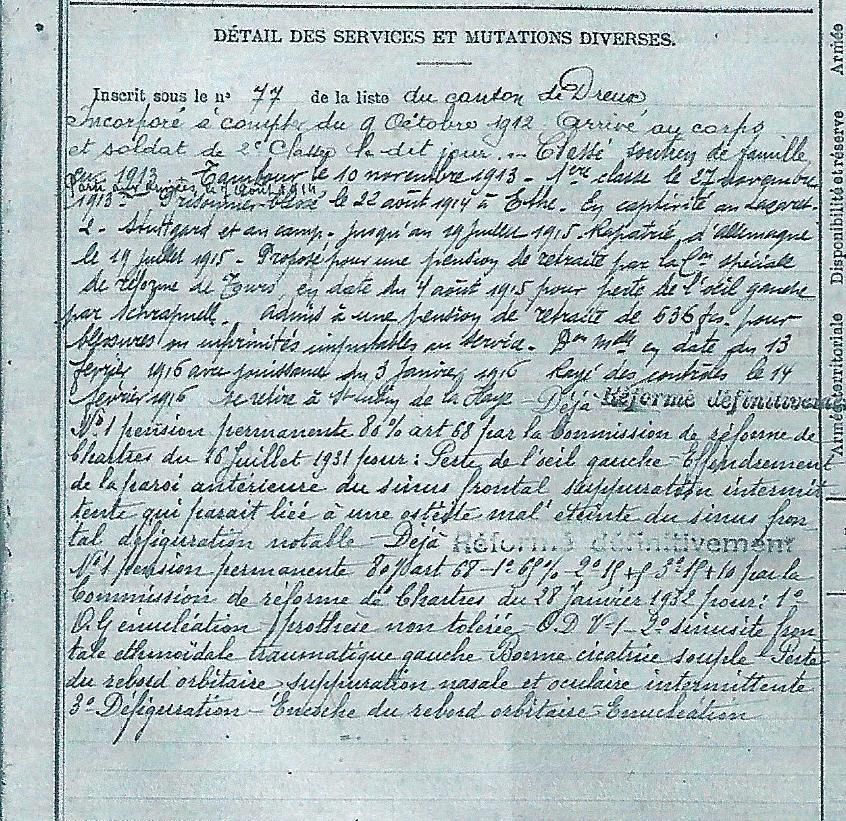 DÉTAIL DES SERVICES ET MUTATIONS DIVERSES.
Inscrit sous le n° 77 de la liste du canton de Dreux
Incorporé à compter du 9 Octobre 1912. Arrivé au corps
et soldat de 2e Classe le dit jour. Classé soutien de famille
en 1913. Tambour le 10 novembre 1913 - 1ère classe le 27 novembre
Parti aux armées le 7 Août 1914
1913 - Prisonnier blessé le 22 août 1914 à Ethe. En captivité au Lazaret
2 - Stuttgard et au camp - jusqu'au 19 Juillet 1915. Rapatrié d'allemagne
le 19 juillet 1915 - Proposé pour une pension de retraite par la Con spéciale
de réforme de Tours en date du 4 août 1915 pour perte de l'œil gauche
par schrapnell. Admis à une pension de retraite de 636 frs. pour
blessures ou infirmités imputables au service. Don mlle en date du 13
février 1916 avec jouissance du 3 Janvier 1916 Rayé des contrôles le 14
février 1916 se retire à de la Haye - Déjà Réformé définitivement
N° 1 pension permanente 80% art 68 par la Commission de réforme de
Chartres du 16 Juillet 1931 pour : Perte de l'œil gauche - Effondrement
de la paroi antérieure du sinus frontal suppuration intermit
tente qui parait liée à une ostéite mal éteinte du sinus fron
tal défiguration notable - Déjà Réformé définitivement
N° 1 pension permanente 80% art 68 - 1° 65% - 2° 15 + 5 3° 15 + 10 par la
Commission de réforme de Chartres du 28 Janvier 1932 pour : 1°
O.G énucléation - prothèse non tolérée - O.D V-1 - 2° sinusite fron
tale ethmoïdale traumatique gauche - Bonne cicatrice souple - Perte
du rebord orbitaire - suppuration nasale et oculaire intermittente
3° Défiguration - du rebord orbitaire - Enucléation
Armée territoriale Disponibilité et réserve Armée